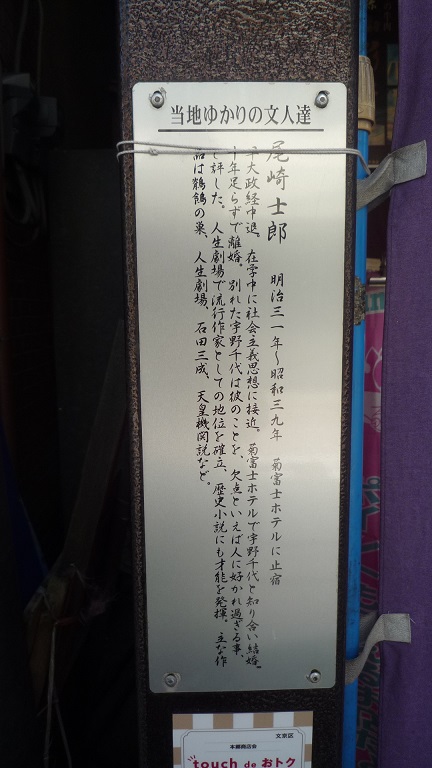 当地ゆかりの文人達
尾崎士郎 明治三一年～昭和三九年 菊富士ホテルに止宿
早大政経中退。在学中に社会主義思想に接近。菊富士ホテルで宇野千代と知り合い結婚。
十年足らずで離婚。別れた宇野千代は彼のことを、欠点といえば人に好かれ過ぎる事、
と評した。人生劇場で流行作家としての地位を確立、歴史小説にも才能を発揮。主な作
品は鶺鴒の巣、人生劇場、石田三成、天皇機関説など。
文京区
本郷商店会
touch de おトク